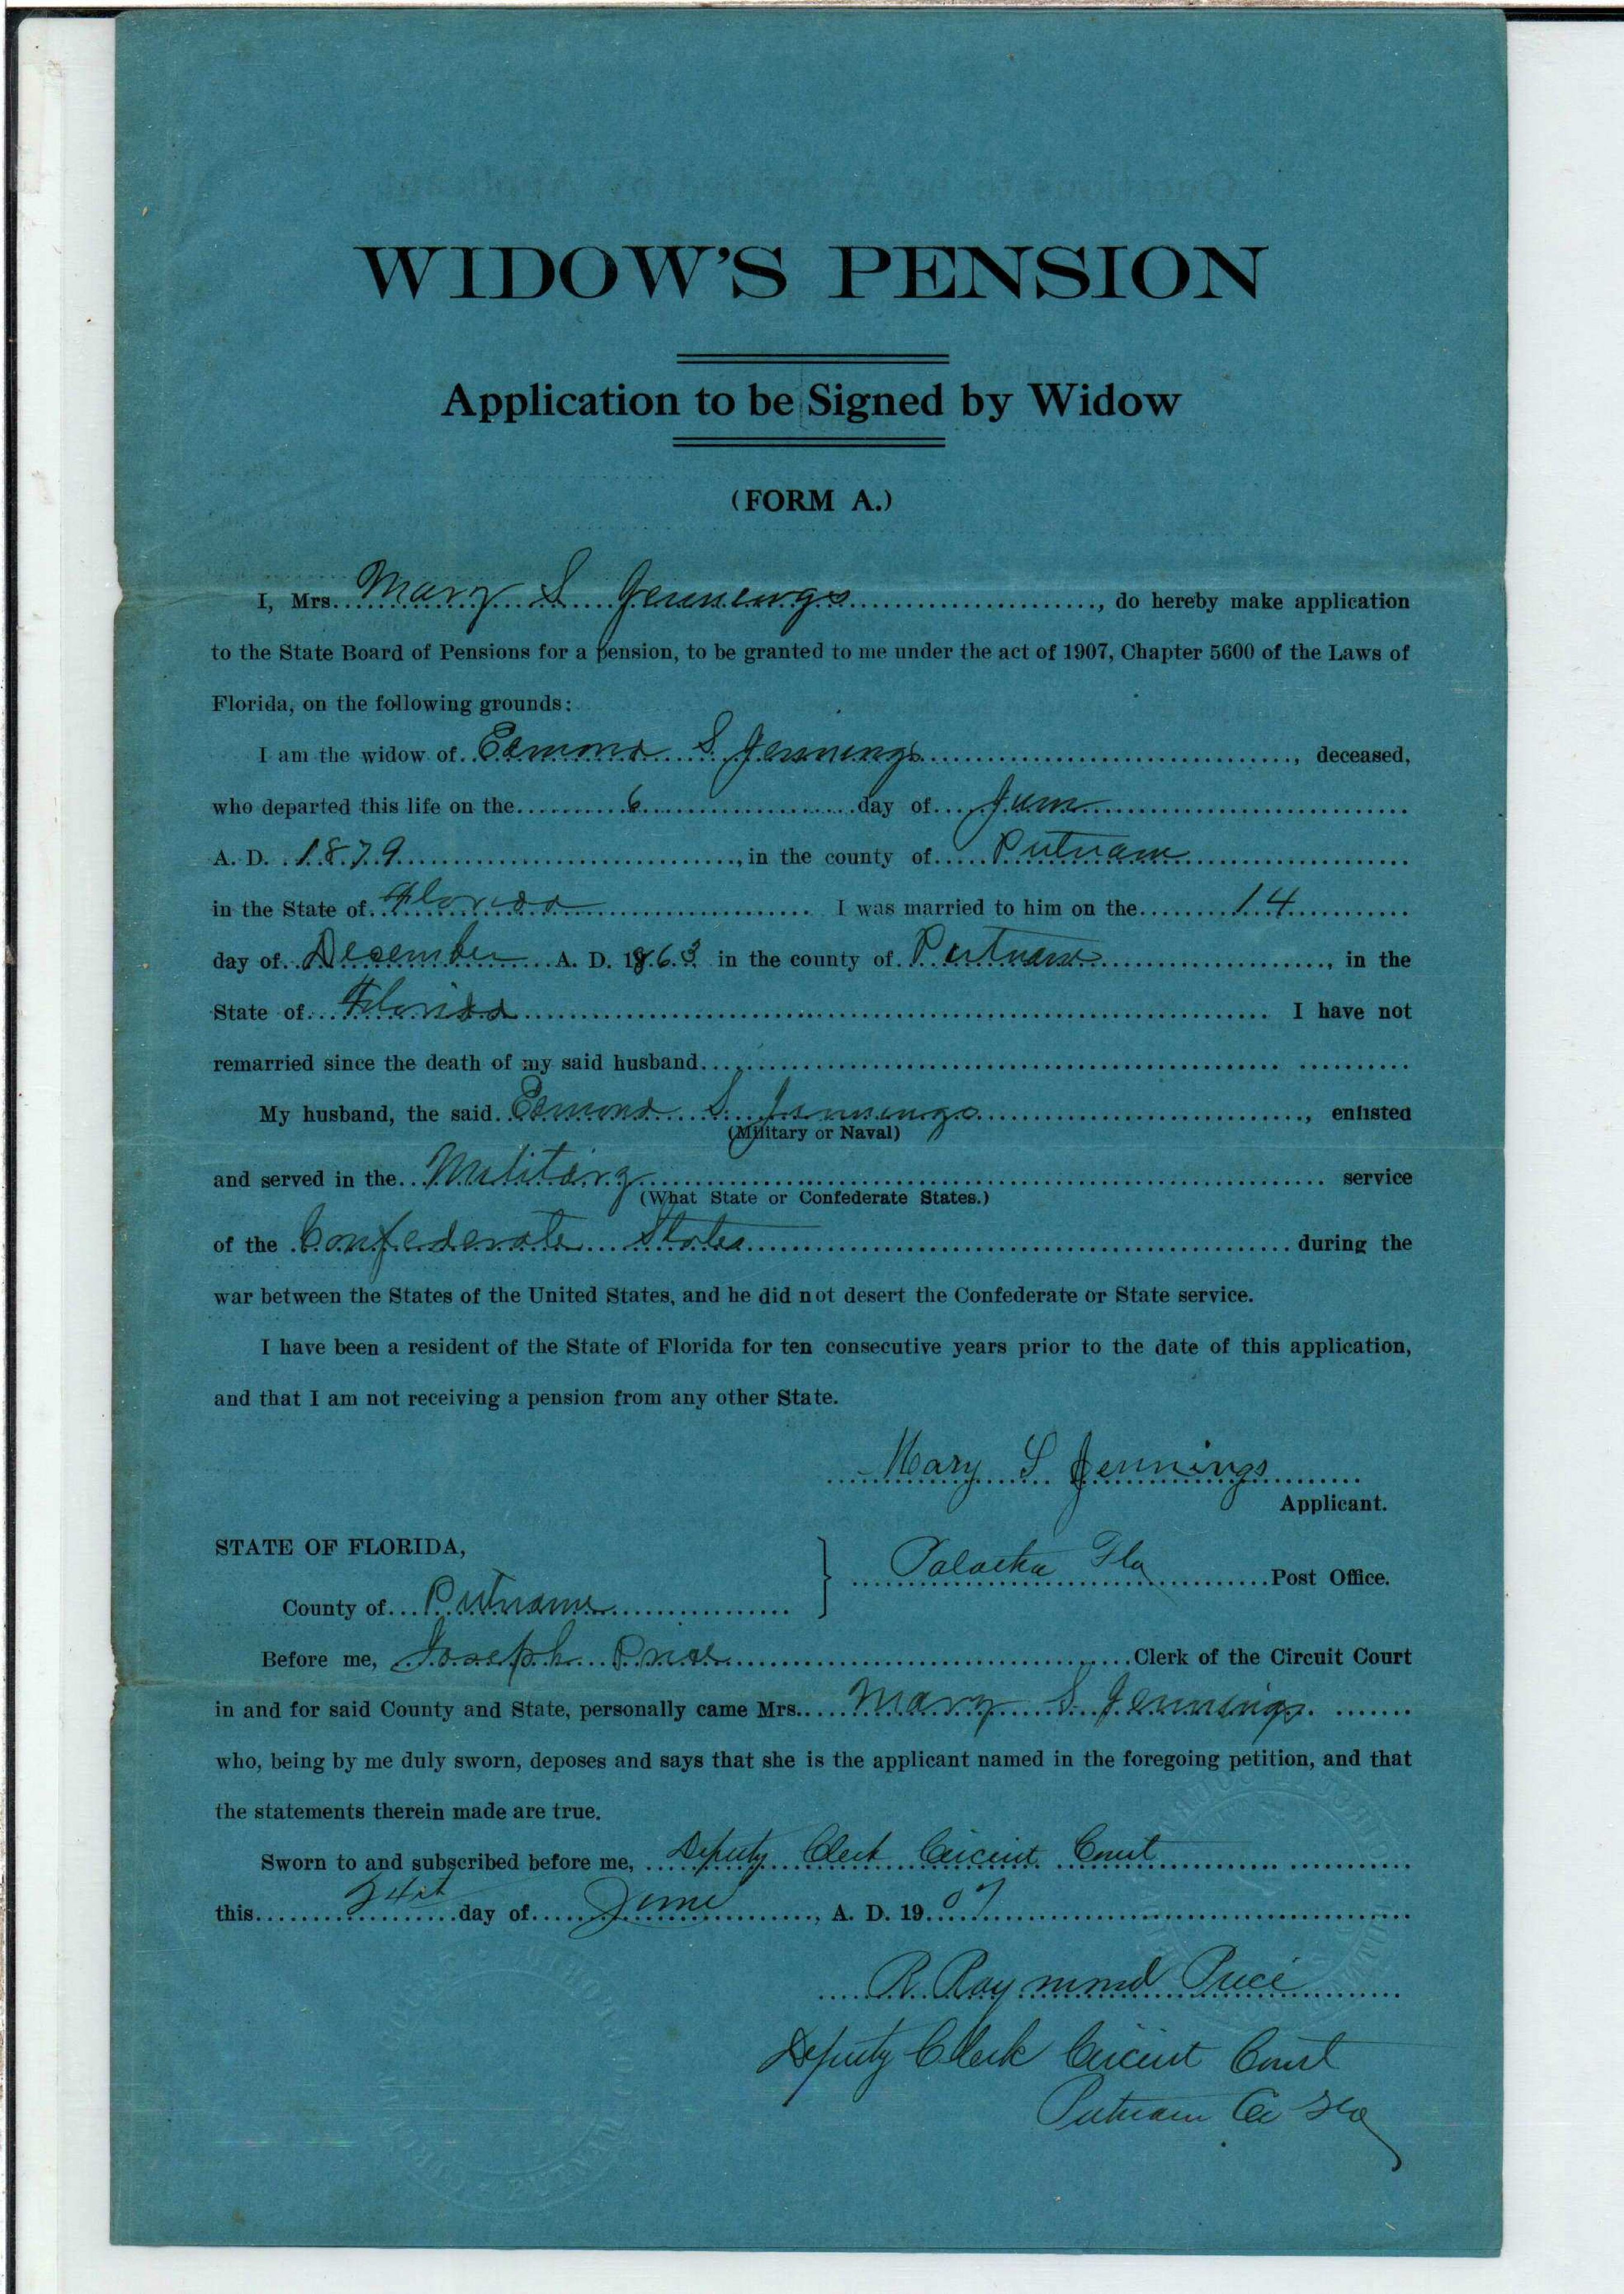 WIDOW'S PENSION
Application to be Signed by Widow
(FORM A.)
I, Mrs. Mary S Jennings, do hereby make application
to the State Board of Pensions for a pension, to be granted to me under the act of 1907, Chapter 5600 of the Laws of
Florida, on the following grounds:
I am the widow of Edmond S. Jennings, deceased,
who departed this life on the 6 day of
A. D. 1879, in the county of Putnam
in the State of Florida I was married to him on the 14
day of December A. D. 1863 in the county of Putnam, in the
State of Florida I have not
remarried since the death of my said husband
My husband, the said Edmond S. Jennings, enlisted
(Military or Naval)
and served in the Military service
(What State or Confederate States.)
of the Confederate States during the
war between the States of the United States, and he did not desert the Confederate or State service.
I have been a resident of the State of Florida for ten consecutive years prior to the date of this application,
and that I am not receiving a pension from any other State.
Mary S Jennings
Applicant.
STATE OF FLORIDA,
Palatka Fla Post Office.
County of Putnam
Before me, Joseph Price Clerk of the Circuit Court
in and for said County and State, personally came Mrs. Mary S. Jennings
who, being by me duly sworn, deposes and says that she is the applicant named in the foregoing petition, and that
the statements therein made are true.
Sworn to and subscribed before me, Deputy Clerk Circuit Court
this day of June, A. D. 1907
R. Raymond Price
Deputy Clerk Circuit Court
Putnam Co Fla